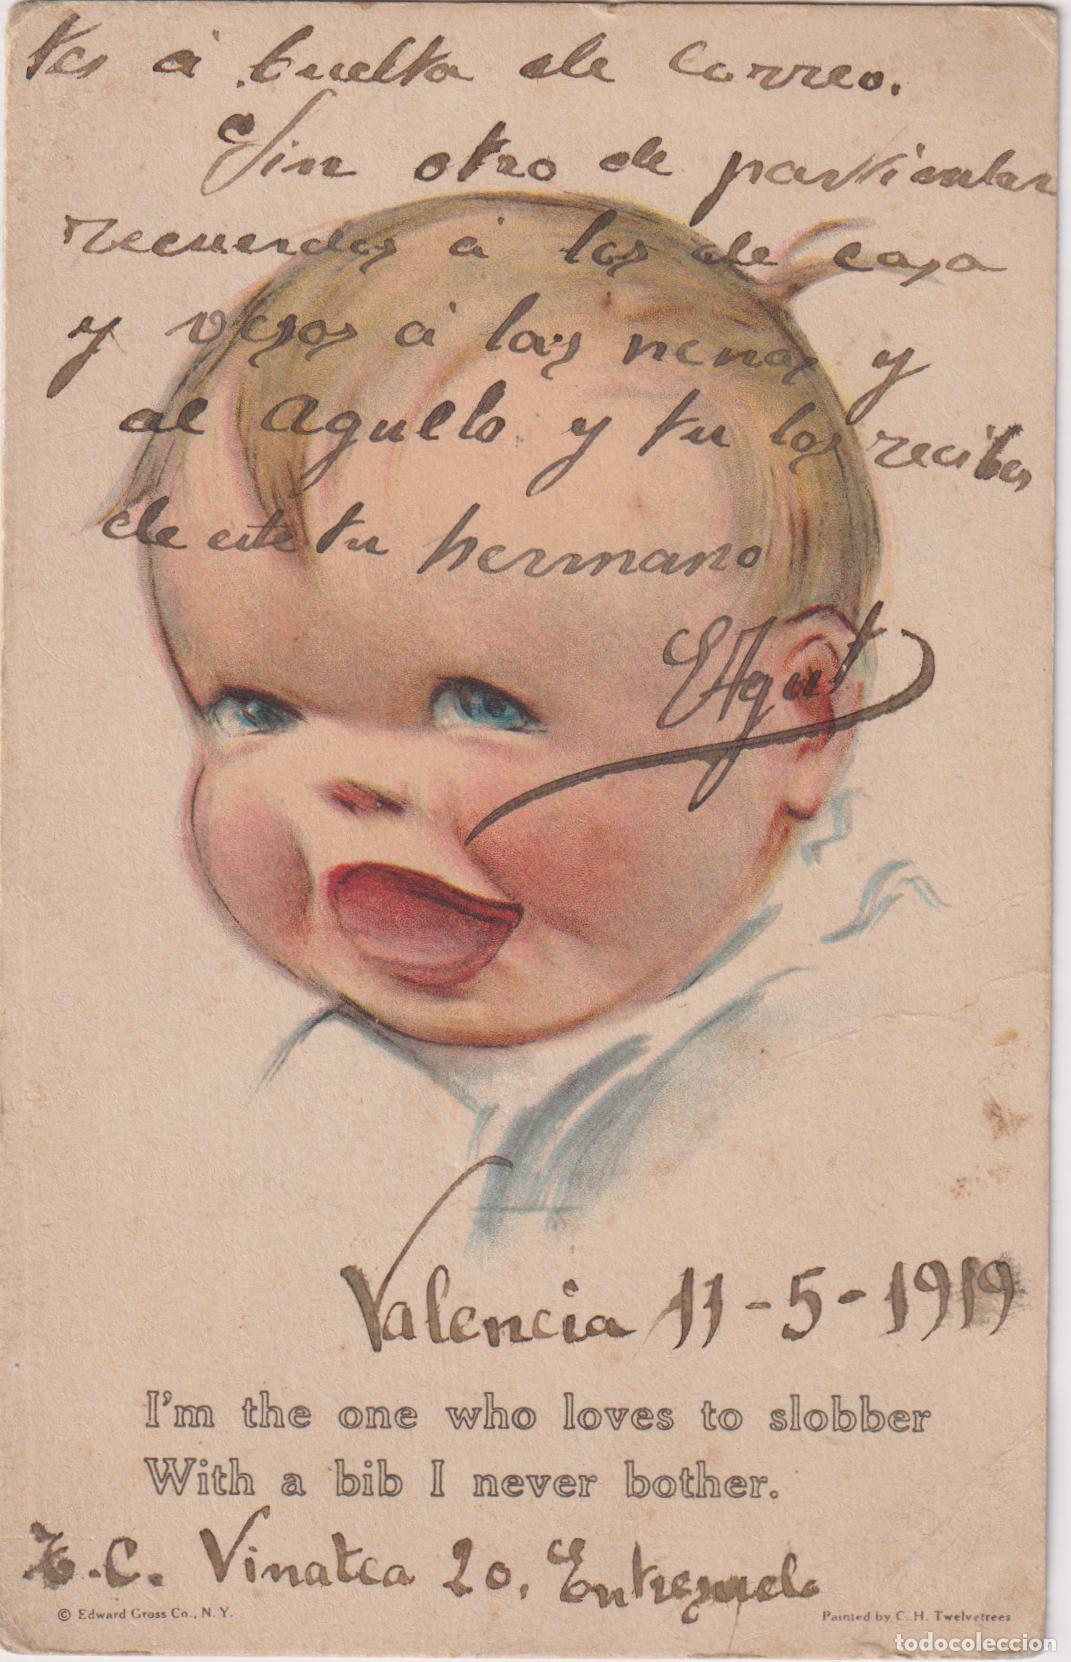 tes á buelta de correo.
Sin otro de particular
recuerdos á los de casa
y vesos á las nenas y
al Aguello y tu los recibes
de este tu hermano
EAgut
Valencia 11-5-1919
I'm the one who loves to slobber
With a bib I never bother.
S.C. Vinatea 20, Entresuelo
© Edward Gross Co., N. Y.
Painted by C. H. Twelvetrees
todocoleccion